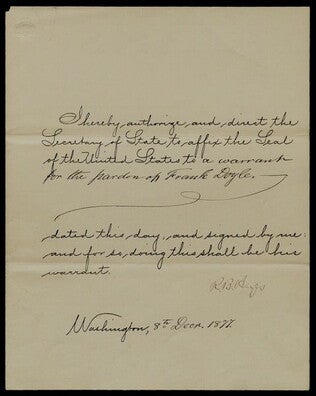 I hereby authorize and direct the
Secretary of State to affix the Seal
of the United States to a warrant
for the pardon of Frank Doyle.
dated this day, and signed by me:
and for so doing this shall be his
warrant.
R.B. Hayes
Washington, 8th Decr. 1877.